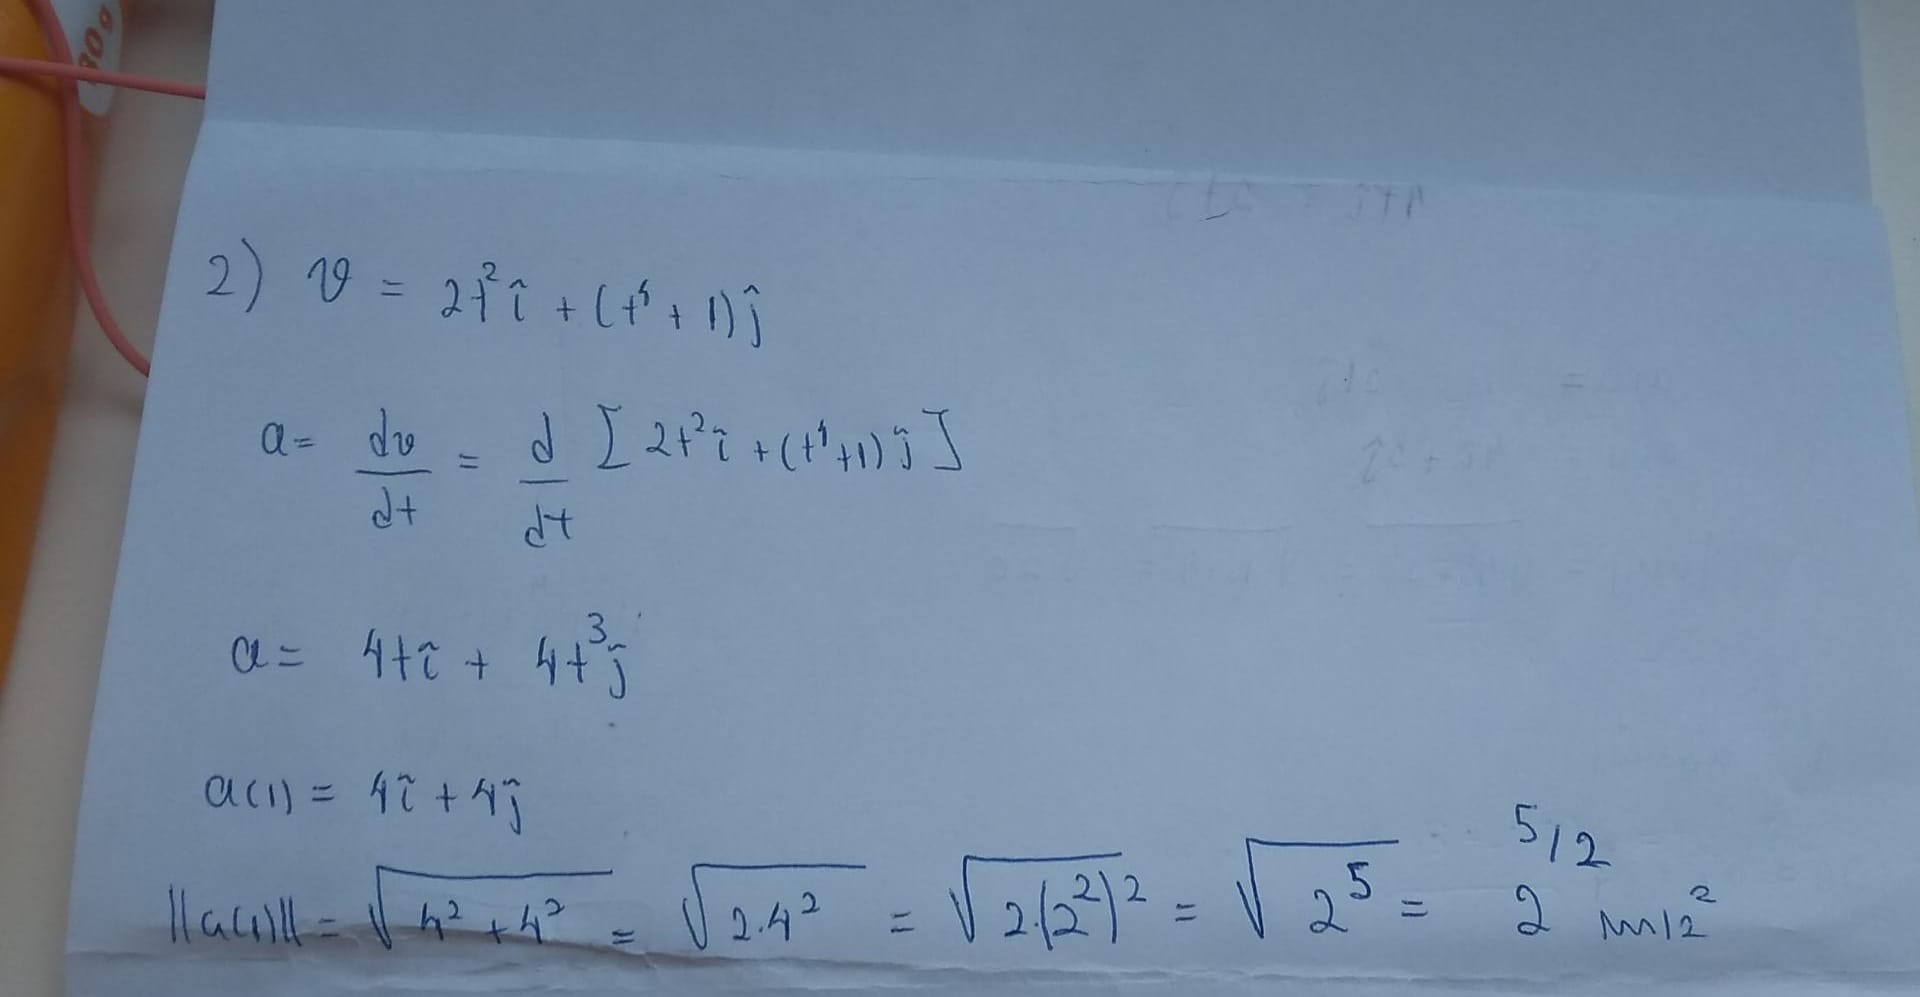 80g
2) v = 2t² î + (t⁴ + 1) ĵ
a = dv/dt = d/dt [ 2t² î + (t⁴+1) ĵ ]
a = 4t î + 4t³ ĵ
a(1) = 4 î + 4 ĵ
||a(1)|| = √(4² + 4²) = √(2.4²) = √(2.(2²)²) = √(2⁵) = 2^(5/2) m/s²